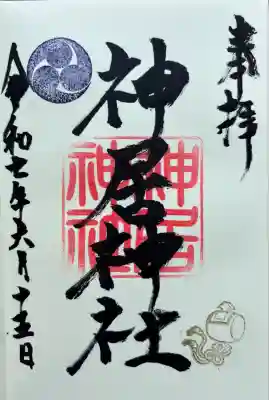 奉拝
神居神社
神居神社
令和七年六月十五日